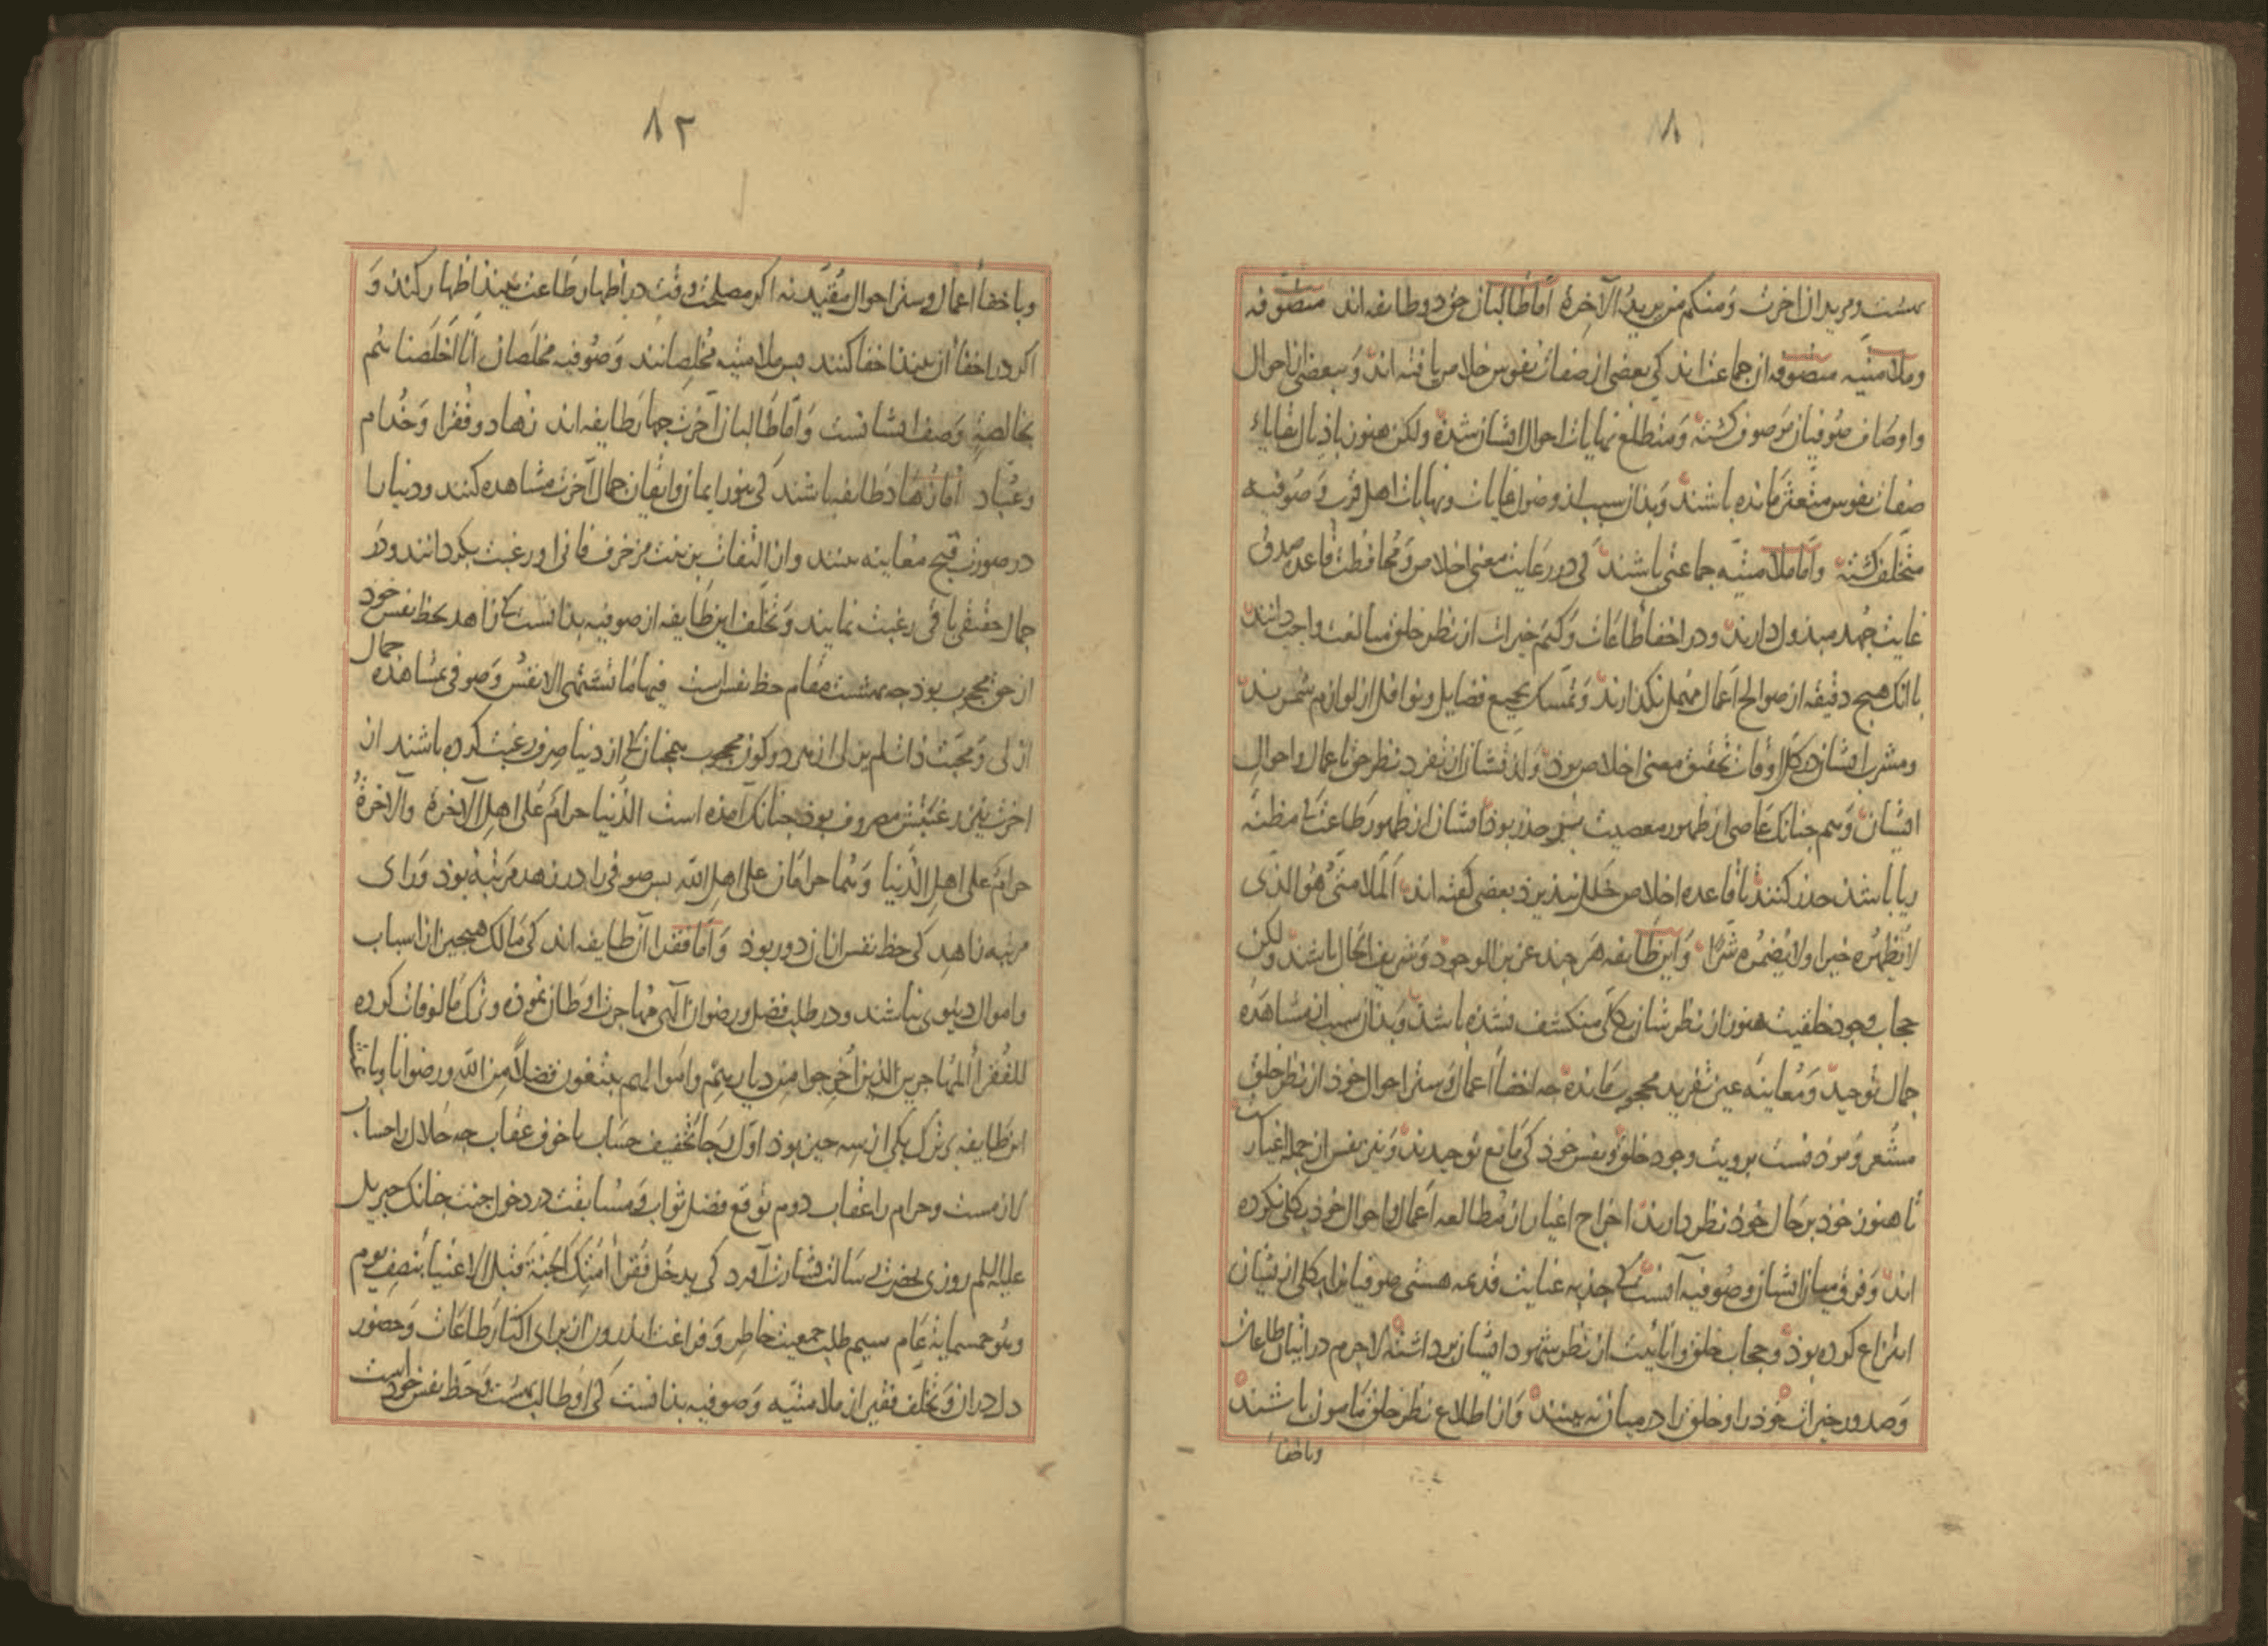 ۸۱
بهشت و مریدان اخرت و منکم من یرید الآخرة اما طالبان حق دو طایفه اند متصوفه
و ملامتیه متصوفه ان جماعت اند کی بعضی از صفات نفوس خلاص یافته اند و ببعضی از احوال
و اوصاف صوفیان موصوف کشته و متطلع نهایات احوال ایشان شده ولکن هنوز باذیال بقایای
صفات نفوس متشبث مانده باشند و بذان سبب از وصول غایات و نهایات اهل قرب و صوفیه
متخلف کشته و اما ملامتیه جماعتی باشند کی در رعایت معنی اخلاص و محافظت قاعده صدق
غایت جهد مبذول دارند و در اخفا طاعات و کتم خیرات از نظر خلق مبالغت واجب دانند
با انک هیچ دقیقه از صوالح اعمال مهمل نکذارند و تمسک بجمیع فضایل و نوافل از لوازم شمرند
و مشرب ایشان در کل اوقات تحقیق معنی اخلاص بوذ و لذتشان از تفرد نظر حق باعمال و احوال
ایشان و هم جنانک عاصی از ظهور معصیت بر حذر بوذ ایشان از ظهور طاعت کی مظنه
ریا باشذ حذر کنند تا قاعده اخلاص خلل نپذیرذ بعضی کفته اند الملامتی هو الذی
لا یظهر خیرا ولا یضمر شرا و این طایفه هر جند عزیز الوجود و شریف الحال باشند ولکن
حجاب وجود خلقیت هنوز از نظرشان بکلی منکشف نشده باشذ و بذان سبب از مشاهده
جمال توحید و معاینه عین تفرید محجوب مانده چه اخفا اعمال و ستر احوال خوذ از نظر خلق
مشعر و موذنست برویت وجود خلق و نفس خوذ کی مانع توحیدند و نیز نفس از جمله اغیارست
تا هنوز خوذ بر حال خوذ نظر دارند اخراج اغیار از مطالعه اعمال و احوال خوذ بکلی نکرده
اند و فرق میان ایشان و صوفیه آنست کی جذبه عنایت قدیمه هستی صوفیانرا بکلی از یشان
انتزاع کرده بوذ و حجاب خلق و انائیت از نظر شهود ایشان برداشته لاجرم در اتیان طاعات
و صدور خیرات خوذ را و خلق را در میان نه بینند و از اطلاع نظر خلق مامون باشند
و باخفا
۸۲
و باخفا اعمال و ستر احوال مقید نه اکر مصلحت وقت در اظهار طاعت بینند اظهار کنند و
اکر در اخفا ان بینند اخفا کنند پس ملامتیه مخلصانند و صوفیه مخلصان انا اخلصناهم
بخالصة وصف ایشانست و اما طالبان آخرت جهار طایفه اند زهاد و فقرا و خدام
و عباد اما زهاد طایفه باشند کی بنور ایمان و ایقان جمال آخرت مشاهده کنند و دنیا را
در صورت قبح معاینه بینند و از التفات بزینت مزخرف فانی او رغبت بکردانند و در
جمال حقیقی باقی رغبت نمایند و تخلف این طایفه از صوفیه بذانست کی زاهد بحظ نفس خود
از حق محجوب بوذ جه بهشت مقام حظ نفس است فیها ما تشتهی الانفس و صوفی بمشاهده جمال
ازلی و محبت ذات لم یزلی از هر دو کون محجوب همجنانک از دنیا صرف رغبت کرده باشند از
اخرت نیز رغبتش مصروف بوذ جنانک آمده است الدنیا حرام علی اهل الآخرة والآخرة
حرام علی اهل الدنیا و هما حرامان علی اهل الله بس صوفی را در زهد مرتبه بوذ ورای
مرتبه زاهد کی حظ نفس از ان دور بوذ و اما فقرا آن طایفه اند کی مالک هیچ چیز از اسباب
و اموال دنیوی نباشند و در طلب فضل و رضوان الهی مهاجرت اوطان نموده و ترک مالوفات کرده
للفقرا المهاجرین الذین اخرجوا من دیارهم و اموالهم یبتغون فضلا من الله و رضوانا و باعث
این طایفه بر ترک یکی از سه جیز بوذ اول رجا تخفیف حساب یا خوف عقاب جه حلال را حساب
لازمست و حرام را عقاب دوم توقع فضل ثواب و مسابقت در دخول جنت جنانک جبریل
علیه السلم روزی بحضرت رسالت بشارت آورد کی یدخل فقرا امتک الجنة قبل الاغنیا بنصف یوم
و هو خمسمایة عام سیم طلب جمعیت خاطر و فراغت اندرون از برای اکثار طاعات و حضور
دل در ان و تخلف فقیر از ملامتیه و صوفیه بذانست کی او طالب بهشت و حظ نفس خودست